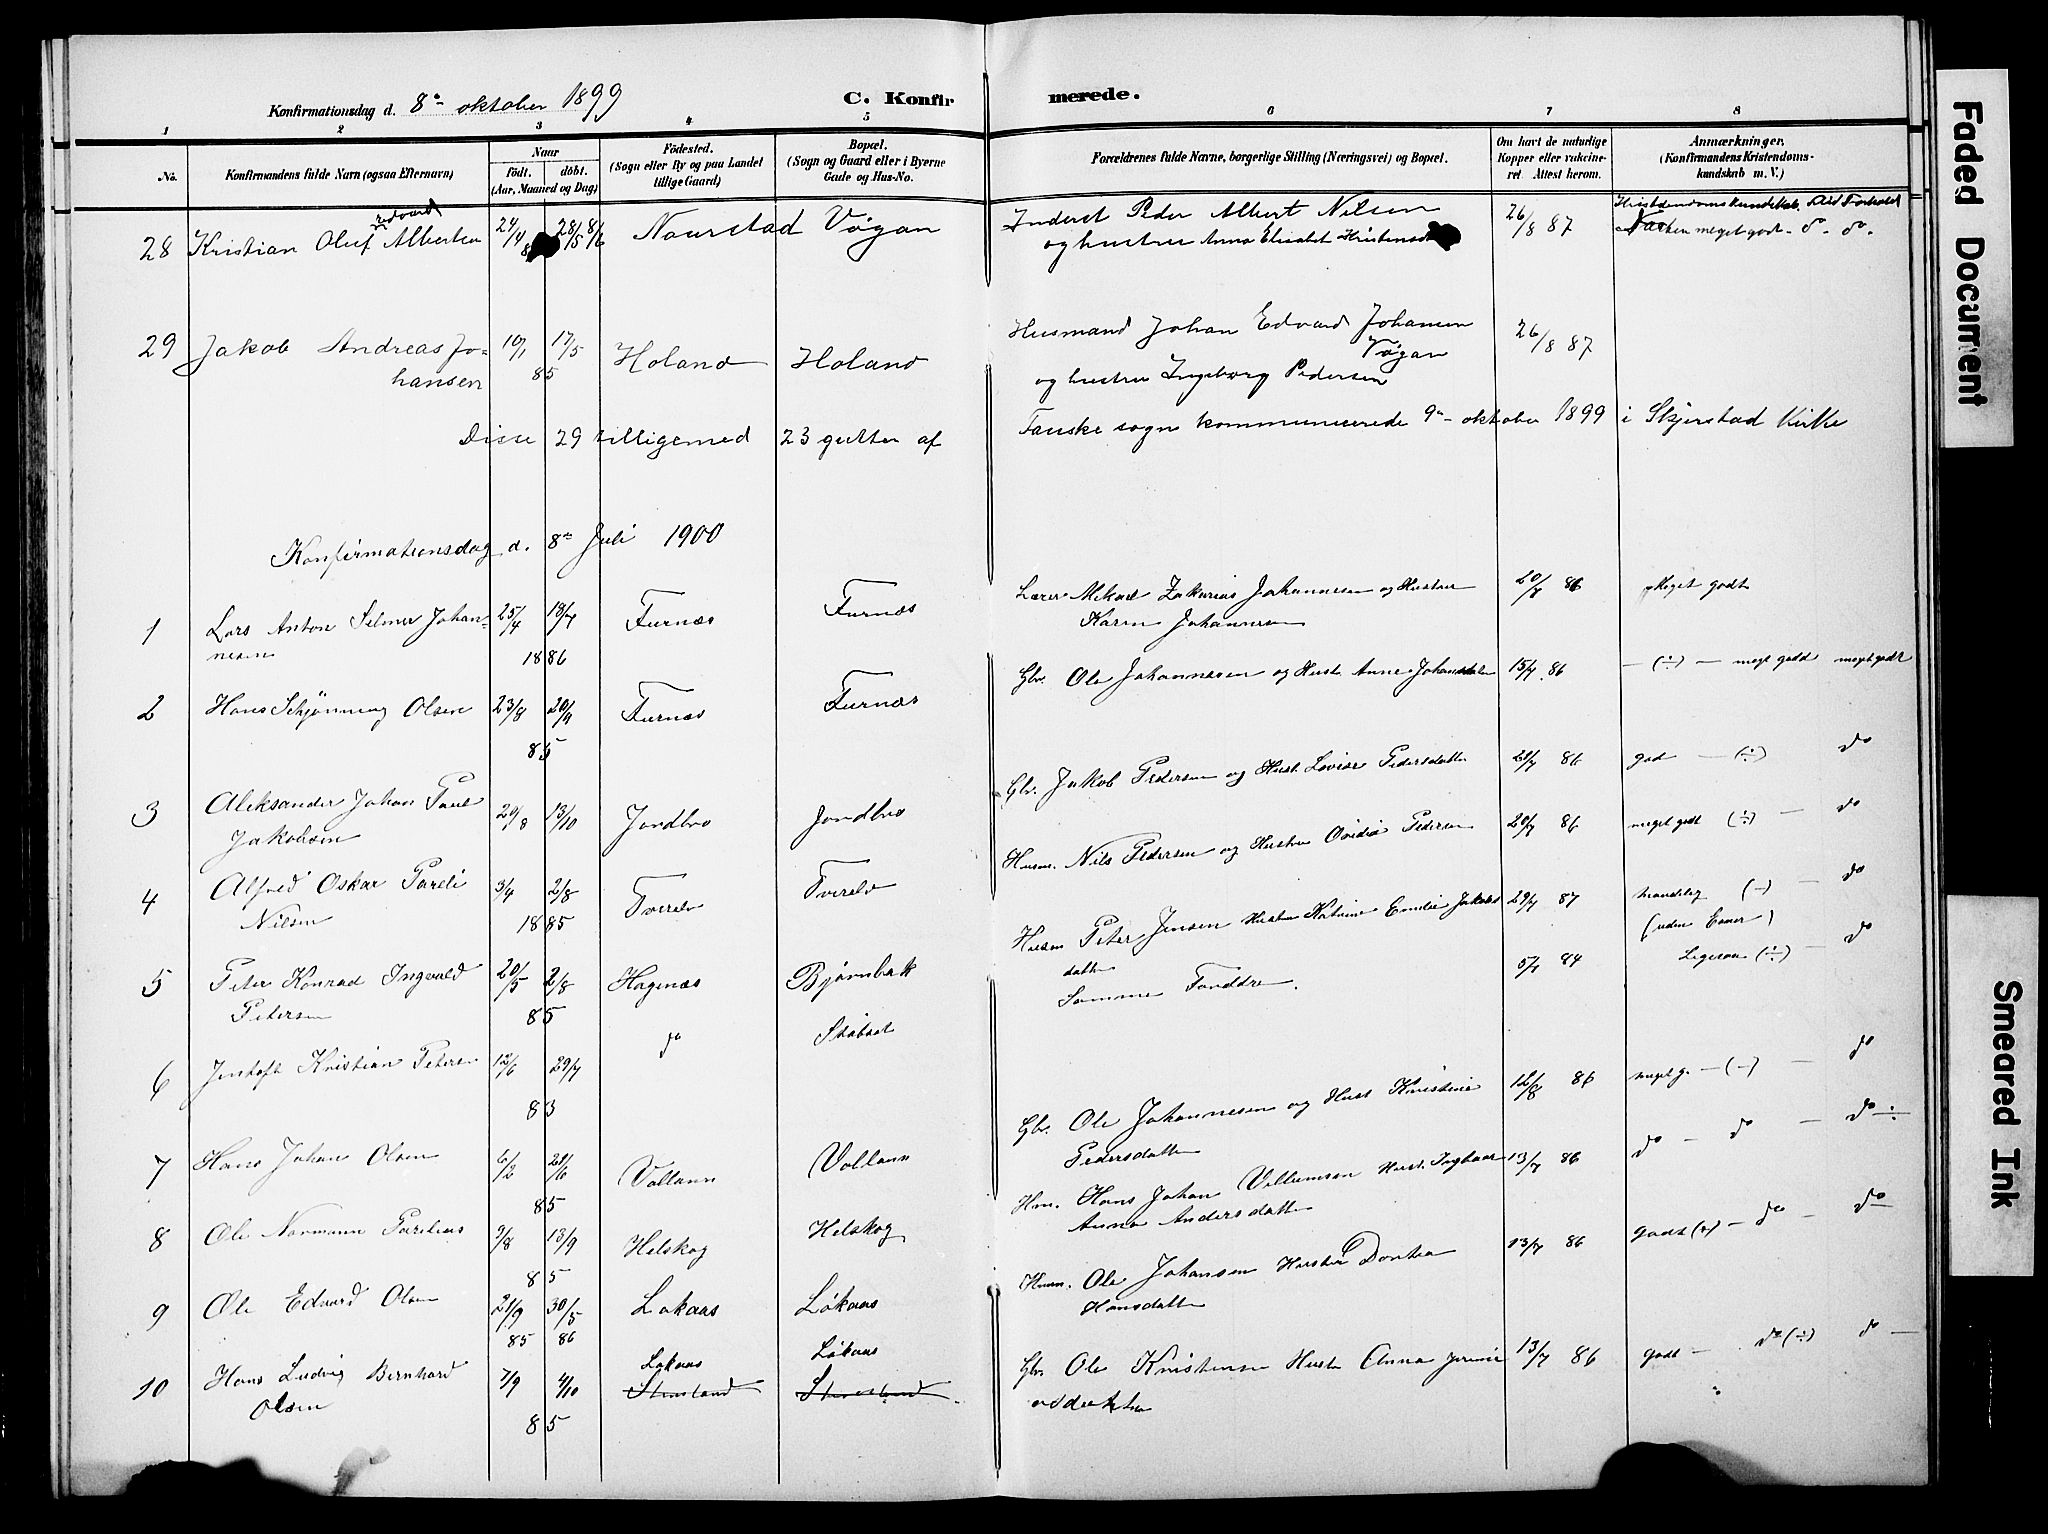 Konfirmationsdag d. 8de oktober 1899
C. Konfir merede.
1 2 3 4 5 6 7 8
No. Konfirmandens fulde Navn (ogsaa Efternavn) Naar födt. döbt. (Aar, Maaned og Dag) Födested. (Sogn eller By og paa Landet tillige Gaard) Bopæl. (Sogn og Gaard eller i Byerne Gade og Hus-No. Forældrenes fulde Navne, borgerlige Stilling (Næringsvei) og Bopæl. Om havt de naturlige Kopper eller vakcineret. Attest herom. Anmærkninger. (Konfirmandens Kristendomskundskab m. V.)
28 Kristian Oluf Edvard Albertsen 24/4 8 28/5 8/6 Naurstad Vøgan Inderst Peder Albert Nilsen 26/8 87 Kristendomskundskab. Flid Forhold
og hustru Anna Elisabet meget god - d. do.
29 Jakob Andreas Johansen 10/1 17/5 85 Holand Holand Husmand Johan Edvard Johansen Vøgan 26/8 87
og hustru Ingeborg Pedersen
Disse 29 tilligemed 23 gutter af Fauske sogn kommunicerede 9de oktober 1899 i Skjerstad Kirke
Konfirmationsdag d. 8de Juli 1900
1 Lars Anton Selmer Johannesen 25/4 18/7 1886 Furnæs Furnæs Lærer Mikael Zakarias Johannesen og Hustru 20/7 86 Meget godt
Karen Johannesen
2 Hans Schjønning Olsen 23/8 20/9 85 Furnæs Furnæs Gbr. Ole Johannesen og Hust. Anne 15/7 86 — (÷) — meget godt meget godt
3 Aleksander Johan Paul Jakobsen 29/8 13/10 Jordbro Jordbro Gbr. Jakob Pedersen og Hust. Lovise Pedersdatter 21/7 86 god — (÷) do
4 Alfred Oskar Pareli Nilsen 3/4 2/8 1885 Tverelv Tverelv Husm. Nils Pedersen og Hustru Ovidia Pedersen 20/7 86 meget godt (÷) — do
5 Peter Konrad Ingvald Petersen 20/5 2/8 85 Hagenæs Bjørnbak Husm Peter Jensen Hustru Katrine Emilie Jakobsdatter 29/7 87 maadelig (-) — do
(uden Evner)
6 Jentoft Kristian Petersen 12/6 29/7 83 do Støbset Samme Forældre. 5/7 84 Ligesaa (÷) — do
7 Hans Johan Olsen 6/2 21/6 85 Vollann Vollann Gbr. Ole Johannesen og Hust Kristine 12/8 86 meget g. — (-) — do
Pedersdatter
8 Ole Normann Parelius 9/8 13/9 85 Helskog Helskog Hm. Hans Johan Villumsen Hust. Ingbaar 13/7 86 do — do — do ÷
Anna Andersdatter
9 Ole Edvard Olsen 21/9 85 30/5 86 Løkaas Løkaas Husm. Ole Johansen Hustru Dorthea 13/7 86 godt — do — do
Hansdatter
10 Hans Ludvig Bernhard Olsen 7/9 4/10 85 Løkaas Løkaas Gbr. Ole Kristensen Hustr Anna 13/7 86 godt — do (÷) do —
Faded Document
Smeared Ink